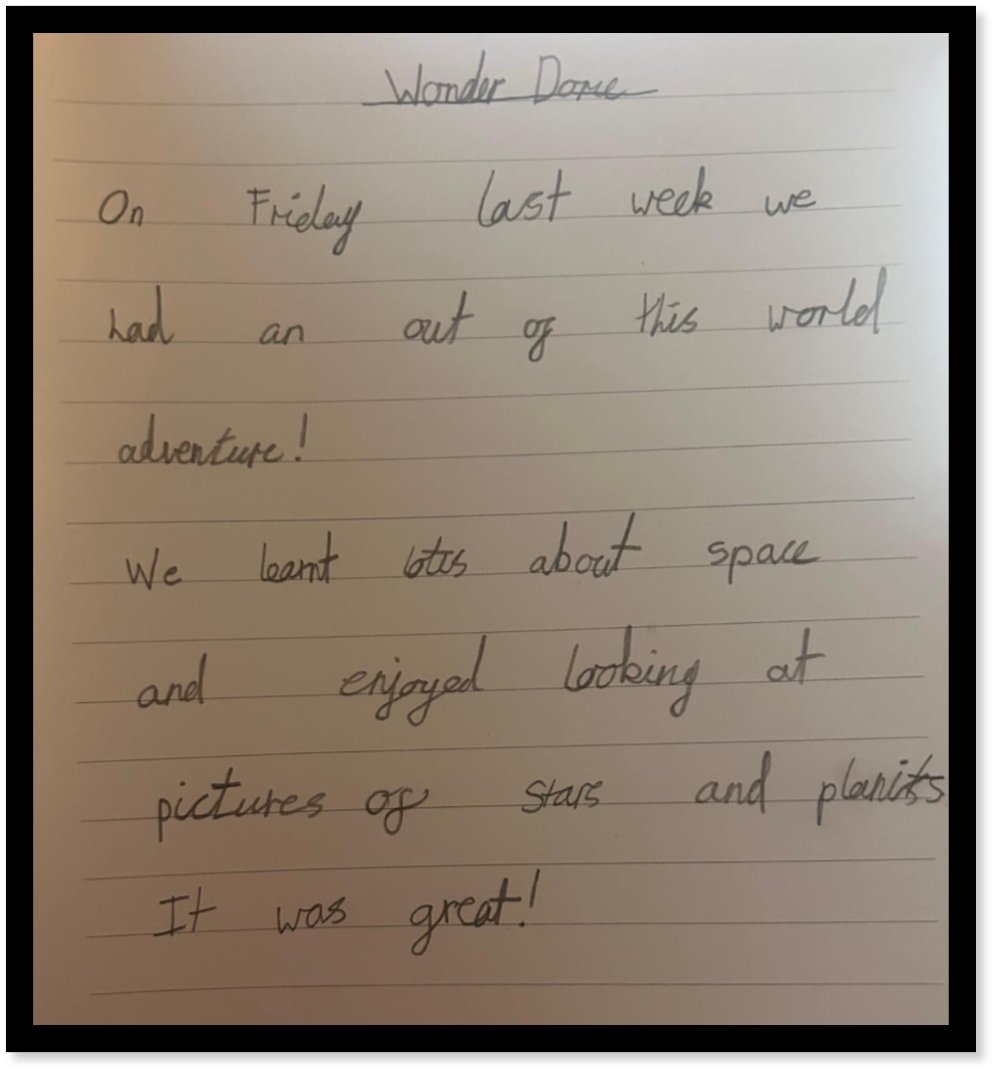 Wonder Dome
On Friday last week we
had an out of this world
adventure!
We learnt lots about space
and enjoyed looking at
pictures of stars and planits
It was great!